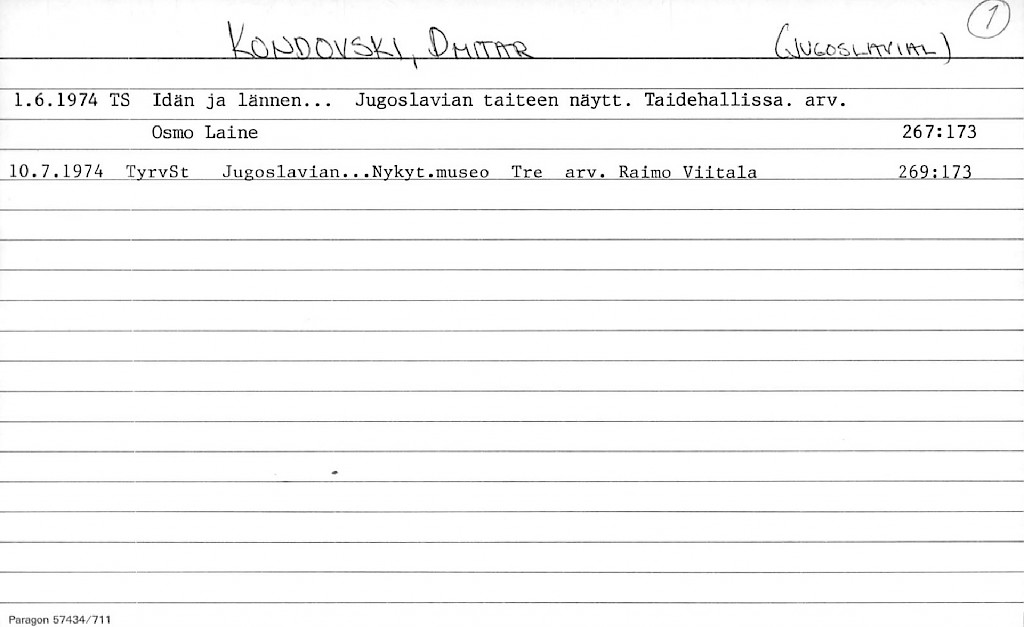 KONDOVSKI, DMITAR (JUGOSLAVIAL) 1
1.6.1974 TS Idän ja lännen... Jugoslavian taiteen näytt. Taidehallissa. arv.
Osmo Laine 267:173
10.7.1974 TyrvSt Jugoslavian...Nykyt.museo Tre arv. Raimo Viitala 269:173
Paragon 57434/711